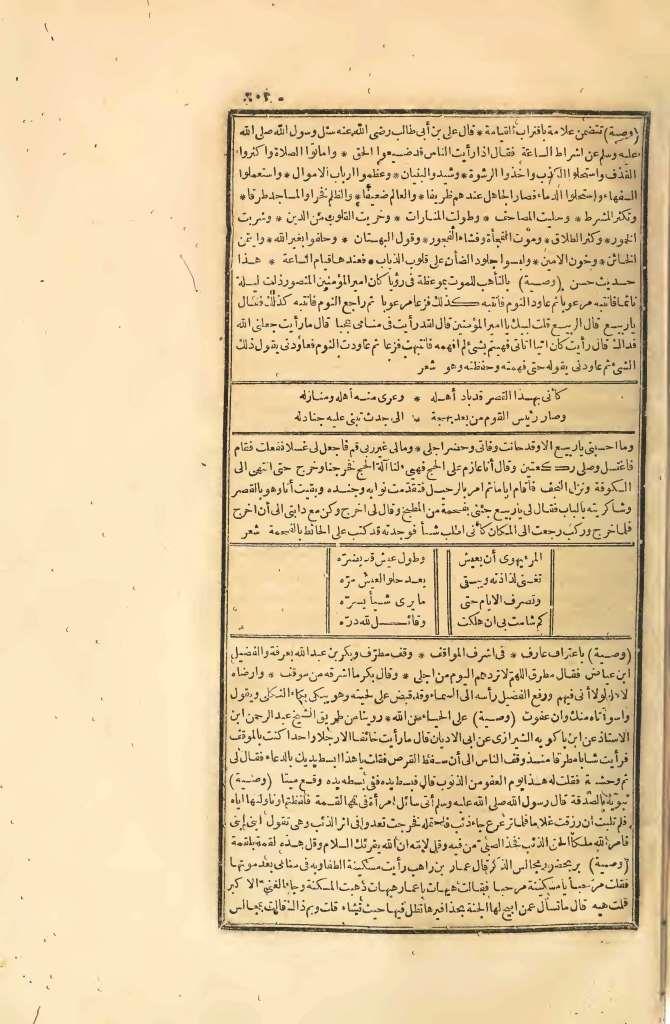 (وصية) تتضمن علامة باقتراب القيامة * قال علي بن أبي طالب رضي الله عنه سئل رسول الله صلى الله
عليه وسلم عن اشراط الساعة فقال اذا رأيت الناس قد ضيعوا الحق * واماتوا الصلاة واكثروا
القذف واستحلوا الكذب واخذوا الرشوة * وشيدوا البنيان * وعظموا ارباب الاموال * واستعملوا
السفهاء واستحلوا الدماء فصار الجاهل عندهم ظريفا * والعالم ضعيفا * والظلم فخرا والمساجد طرقا *
وتكثر الشرط * وحليت المصاحف * وطولت المنارات * وخربت القلوب من الدين * وشربت
الخمور * وكثر الطلاق * وموت الفجأة وفشاء الفجور * وقول البهتان * وحلفوا بغير الله * وائتمن
الخائن * وخون الامين * ولبسوا جلود الضأن على قلوب الذياب * فعندها قيام الساعة * هذا
حديث حسن (وصية) بالتأهب للموت بموعظة في رؤيا كان امير المؤمنين المنصور ذات ليلة
نائما فانتبه مرعوبا ثم عاود النوم فانتبه كذلك فزعا مرعوبا ثم راجع النوم فانتبه كذلك فقال
ياربيع قال الربيع قلت لبيك يا امير المؤمنين قال لقد رأيت في منامى عجبا قال ما رأيت جعلني الله
فداك قال رأيت كأن اتيا اتاني فهينم بشئ لم افهمه فانتبهت فزعا ثم عاودت النوم فعاودني يقول ذلك
الشئ ثم عاودني يقوله حتى فهمته وحفظته وهو شعر
كأني بهذا القصر قد باد أهله * وعرى منه أهله ومنازله
وصار رئيس القوم من بعد بهجة * الى جدث تبنى عليه جنادله
وما احسبني ياربيع الا وقد حانت وفاتي وحضر اجلي * ومالي غير ربى قم فاجعل لي غسلا ففعلت فقام
فاغتسل وصلى ركعتين وقال أنا عازم على الحج فهيئ لنا آلة الحج فخرجنا وخرج حتى انتهى الى
الكوفة ونزل النجف فأقام اياما ثم امر بالرحيل فتقدمت نوابه وجنده وبقيت أنا وهو بالقصر
وشاكريته بالباب فقال لى ياربيع جئنى بفحمة من المطبخ وقال لى اخرج وكن مع دابتى الى أن اخرج
فلما خرج وركب رجعت الى المكان كأني اطلب شيأ فوجدته قد كتب على الحائط بالفحمة شعر
المرء يهوى أن يعيش وطول عيش قد يضره
تفنى لذاذته ويبقى بعد حلو العيش مره
وتصرف الايام حتى ما يرى شيأ يسره
كم شامت بى ان هلكت وقائل لله دره
(وصية) باعتراف عارف * فى اشرف المواقف * وقف مطرف وبكر بن عبد الله بعرفة والفضيل
ابن عياض فقال مطرف اللهم لا تردهم اليوم من اجلي * وقال بكر ما اشرفه من موقف * وارضاه
لاهله لولا أنى فيهم ورفع الفضيل رأسه الى السماء وقد قبض على لحيته وهو يبكى بكاء الثكلى ويقول
واسوأتاه منك وان عفوت (وصية) على الحياء من الله * روينا من طريق الشيخ عبد الرحمن ابن
الاستاذ عن ابن باكويه الشيرازى عن ابى الاديان قال ما رأيت خائفا الا رجلا واحدا كنت بالموقف
فرأيت شابا مطرقا منذ وقف الناس الى أن سقط القرص فقلت ياهذا ابسط يديك بالدعاء فقال لى
ثم وحشة فقلت له هذا يوم العفو من الذنوب قال فبسط يده ففى بسطه يده وقع ميتا (وصية)
نبوية بالصدقة قال رسول الله صلى الله عليه وسلم أتى سائل امرأة فى فمها لقمة فلفظتها وناولتها اياه
فلم تلبث أن رزقت غلاما فلما ترعرع جاء ذئب فاحتمله فخرجت تعدو فى اثر الذئب وهى تقول ابنى ابنى
فامر الله ملكا الحق الذئب فخذ الصبى من فيه وقل لامه ان الله يقرئك السلام وقل هذه لقمة بلقمة
(وصية) بحضور مجالس الذكر قال عمار بن راهب رأيت مسكينة الطفاوية فى منامى بعد موتها
فقلت مرحبا يا مسكينة مرحبا فقالت هيهات ياعمار هيهات ذهبت المسكنة وجاء الغنى الاكبر
قلت هيه قال ما تسأل عمن ابيح لها الجنة بحذافيرها تظل فيها حيث تشاء قلت وبم ذاك قالت بمجالس